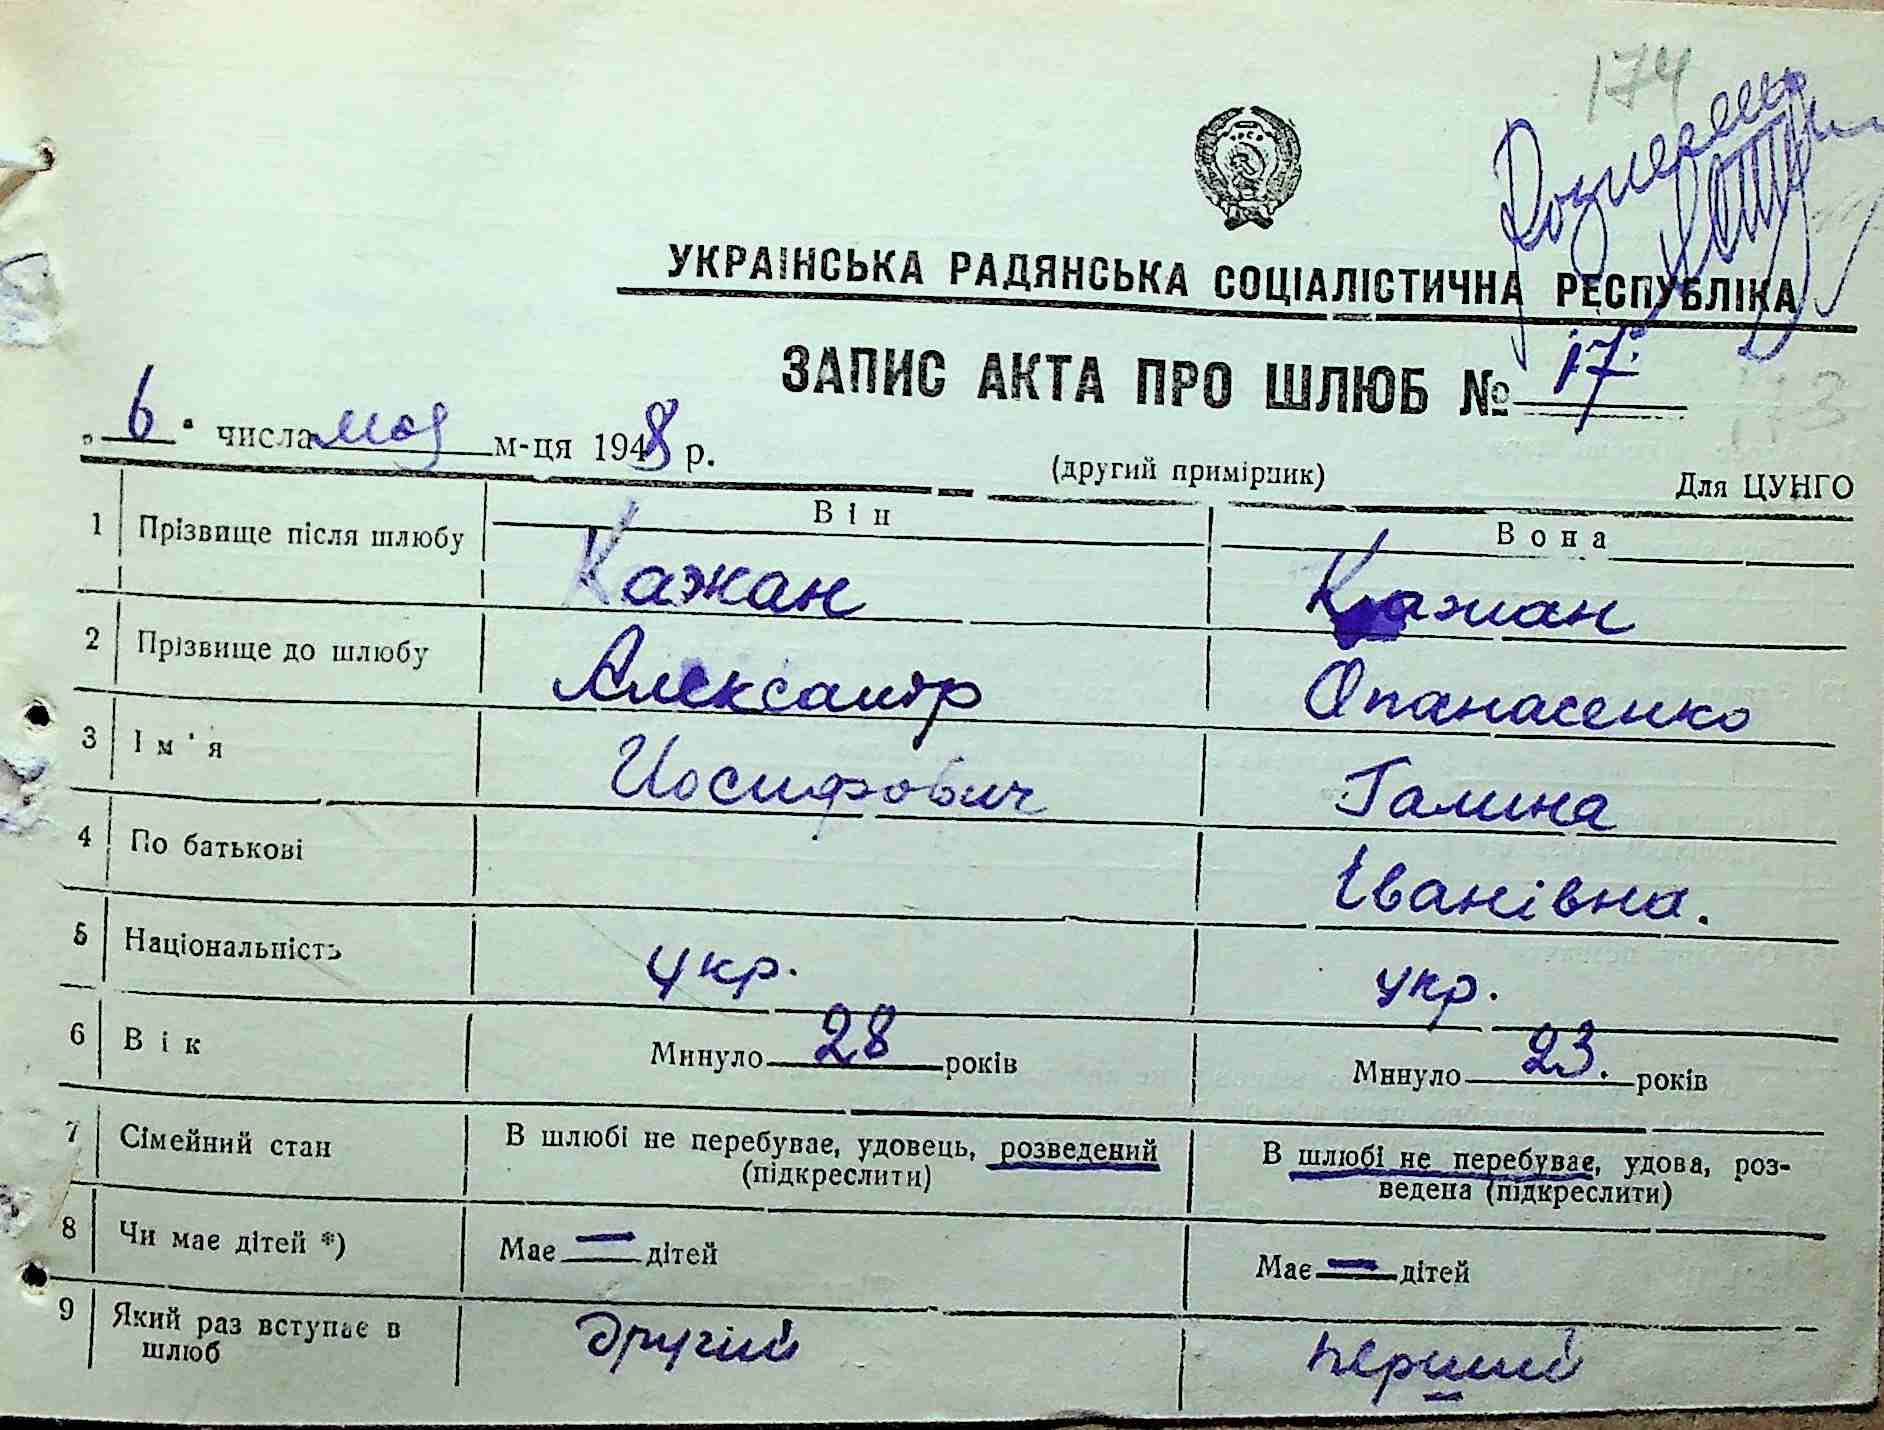 174
УКРАЇНСЬКА РАДЯНСЬКА СОЦІАЛІСТИЧНА РЕСПУБЛІКА
ЗАПИС АКТА ПРО ШЛЮБ № 17
113
„ 6 " числа мая м-ця 1948 р.
(другий примірник)
Для ЦУНГО
Він Вона
1 Прізвище після шлюбу Кажан Кажан
2 Прізвище до шлюбу Александр Опанасенко
3 Ім'я Иосифович Галина
4 По батькові Іванівна.
5 Національність укр. укр.
6 Вік Минуло 28 років Минуло 23. років
7 Сімейний стан В шлюбі не перебуває, удовець, розведений (підкреслити) В шлюбі не перебуває, удова, роз-
ведена (підкреслити)
8 Чи має дітей *) Має — дітей Має — дітей
9 Який раз вступає в шлюб другий перший